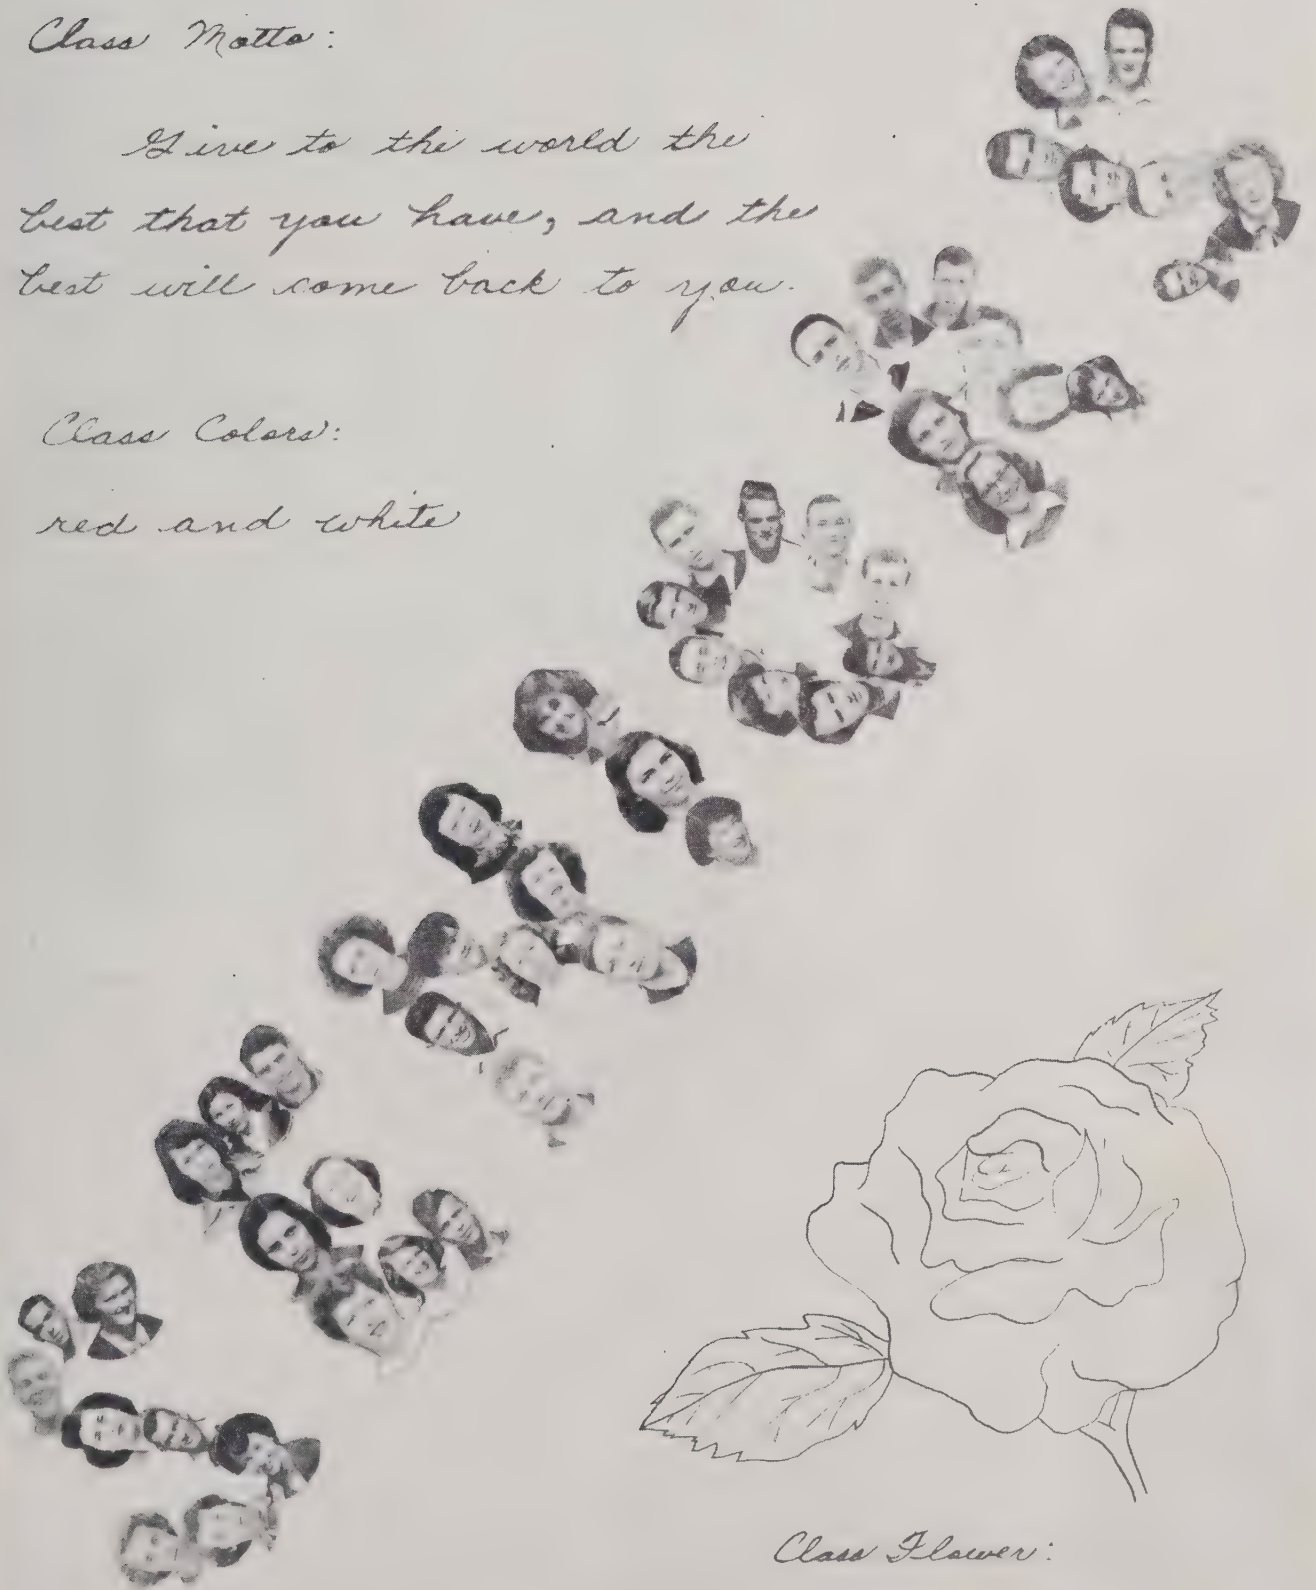 Class Motto:
Give to the world the
best that you have, and the
best will come back to you.
Class Colors:
red and white
Class Flower: